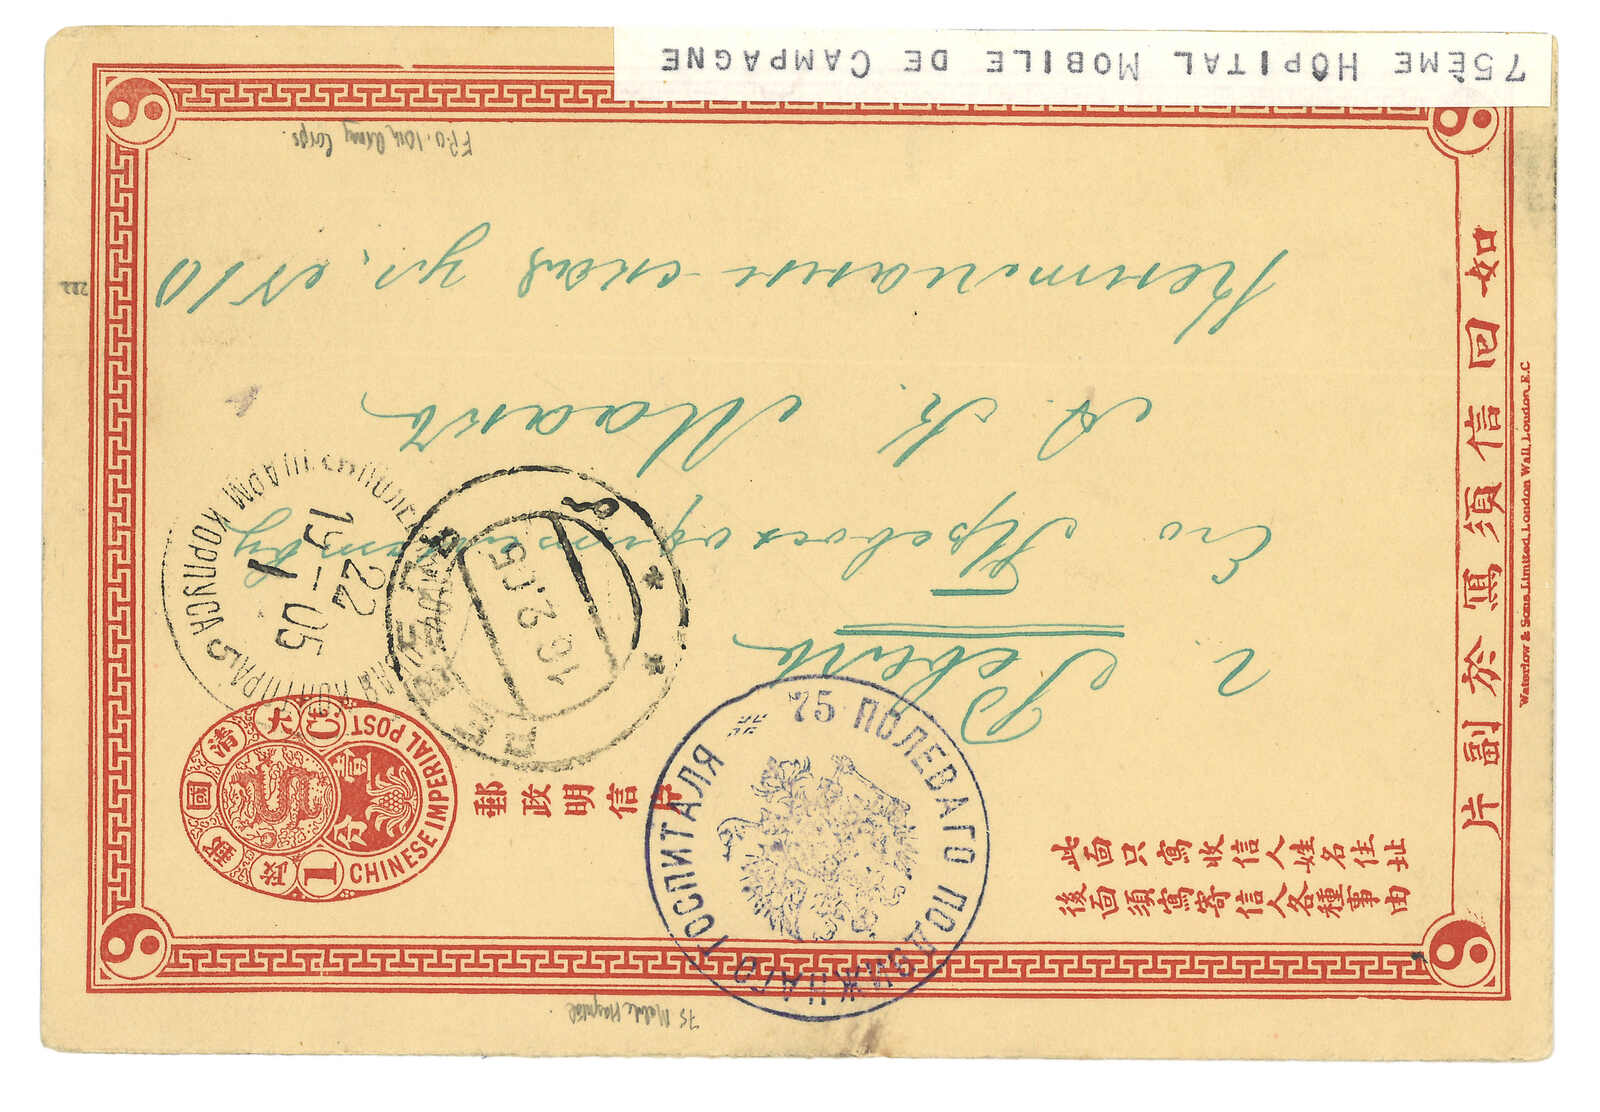 75ÈME HÔPITAL MOBILE DE CAMPAGNE
如回信須寫於副片
Waterlow & Sons Limited, London Wall, London, E.C
此面只寫收信人姓名住址
後面須寫寄信人各種事由
郵政明信片
大清國郵政
壹分
1 C.
CHINESE IMPERIAL POST
г. Ревель
Его Превосх
А. К. Маакъ
ул. № 10
75 ПОЛЕВАГО ПОДВИЖНАГО ГОСПИТАЛЯ
АРМ КОРПУСА
22
19-1-05
5
16.2.05
РЕВЕЛЬ
F.P.O. 10th Army Corps.
75 Mobile Hospital
222